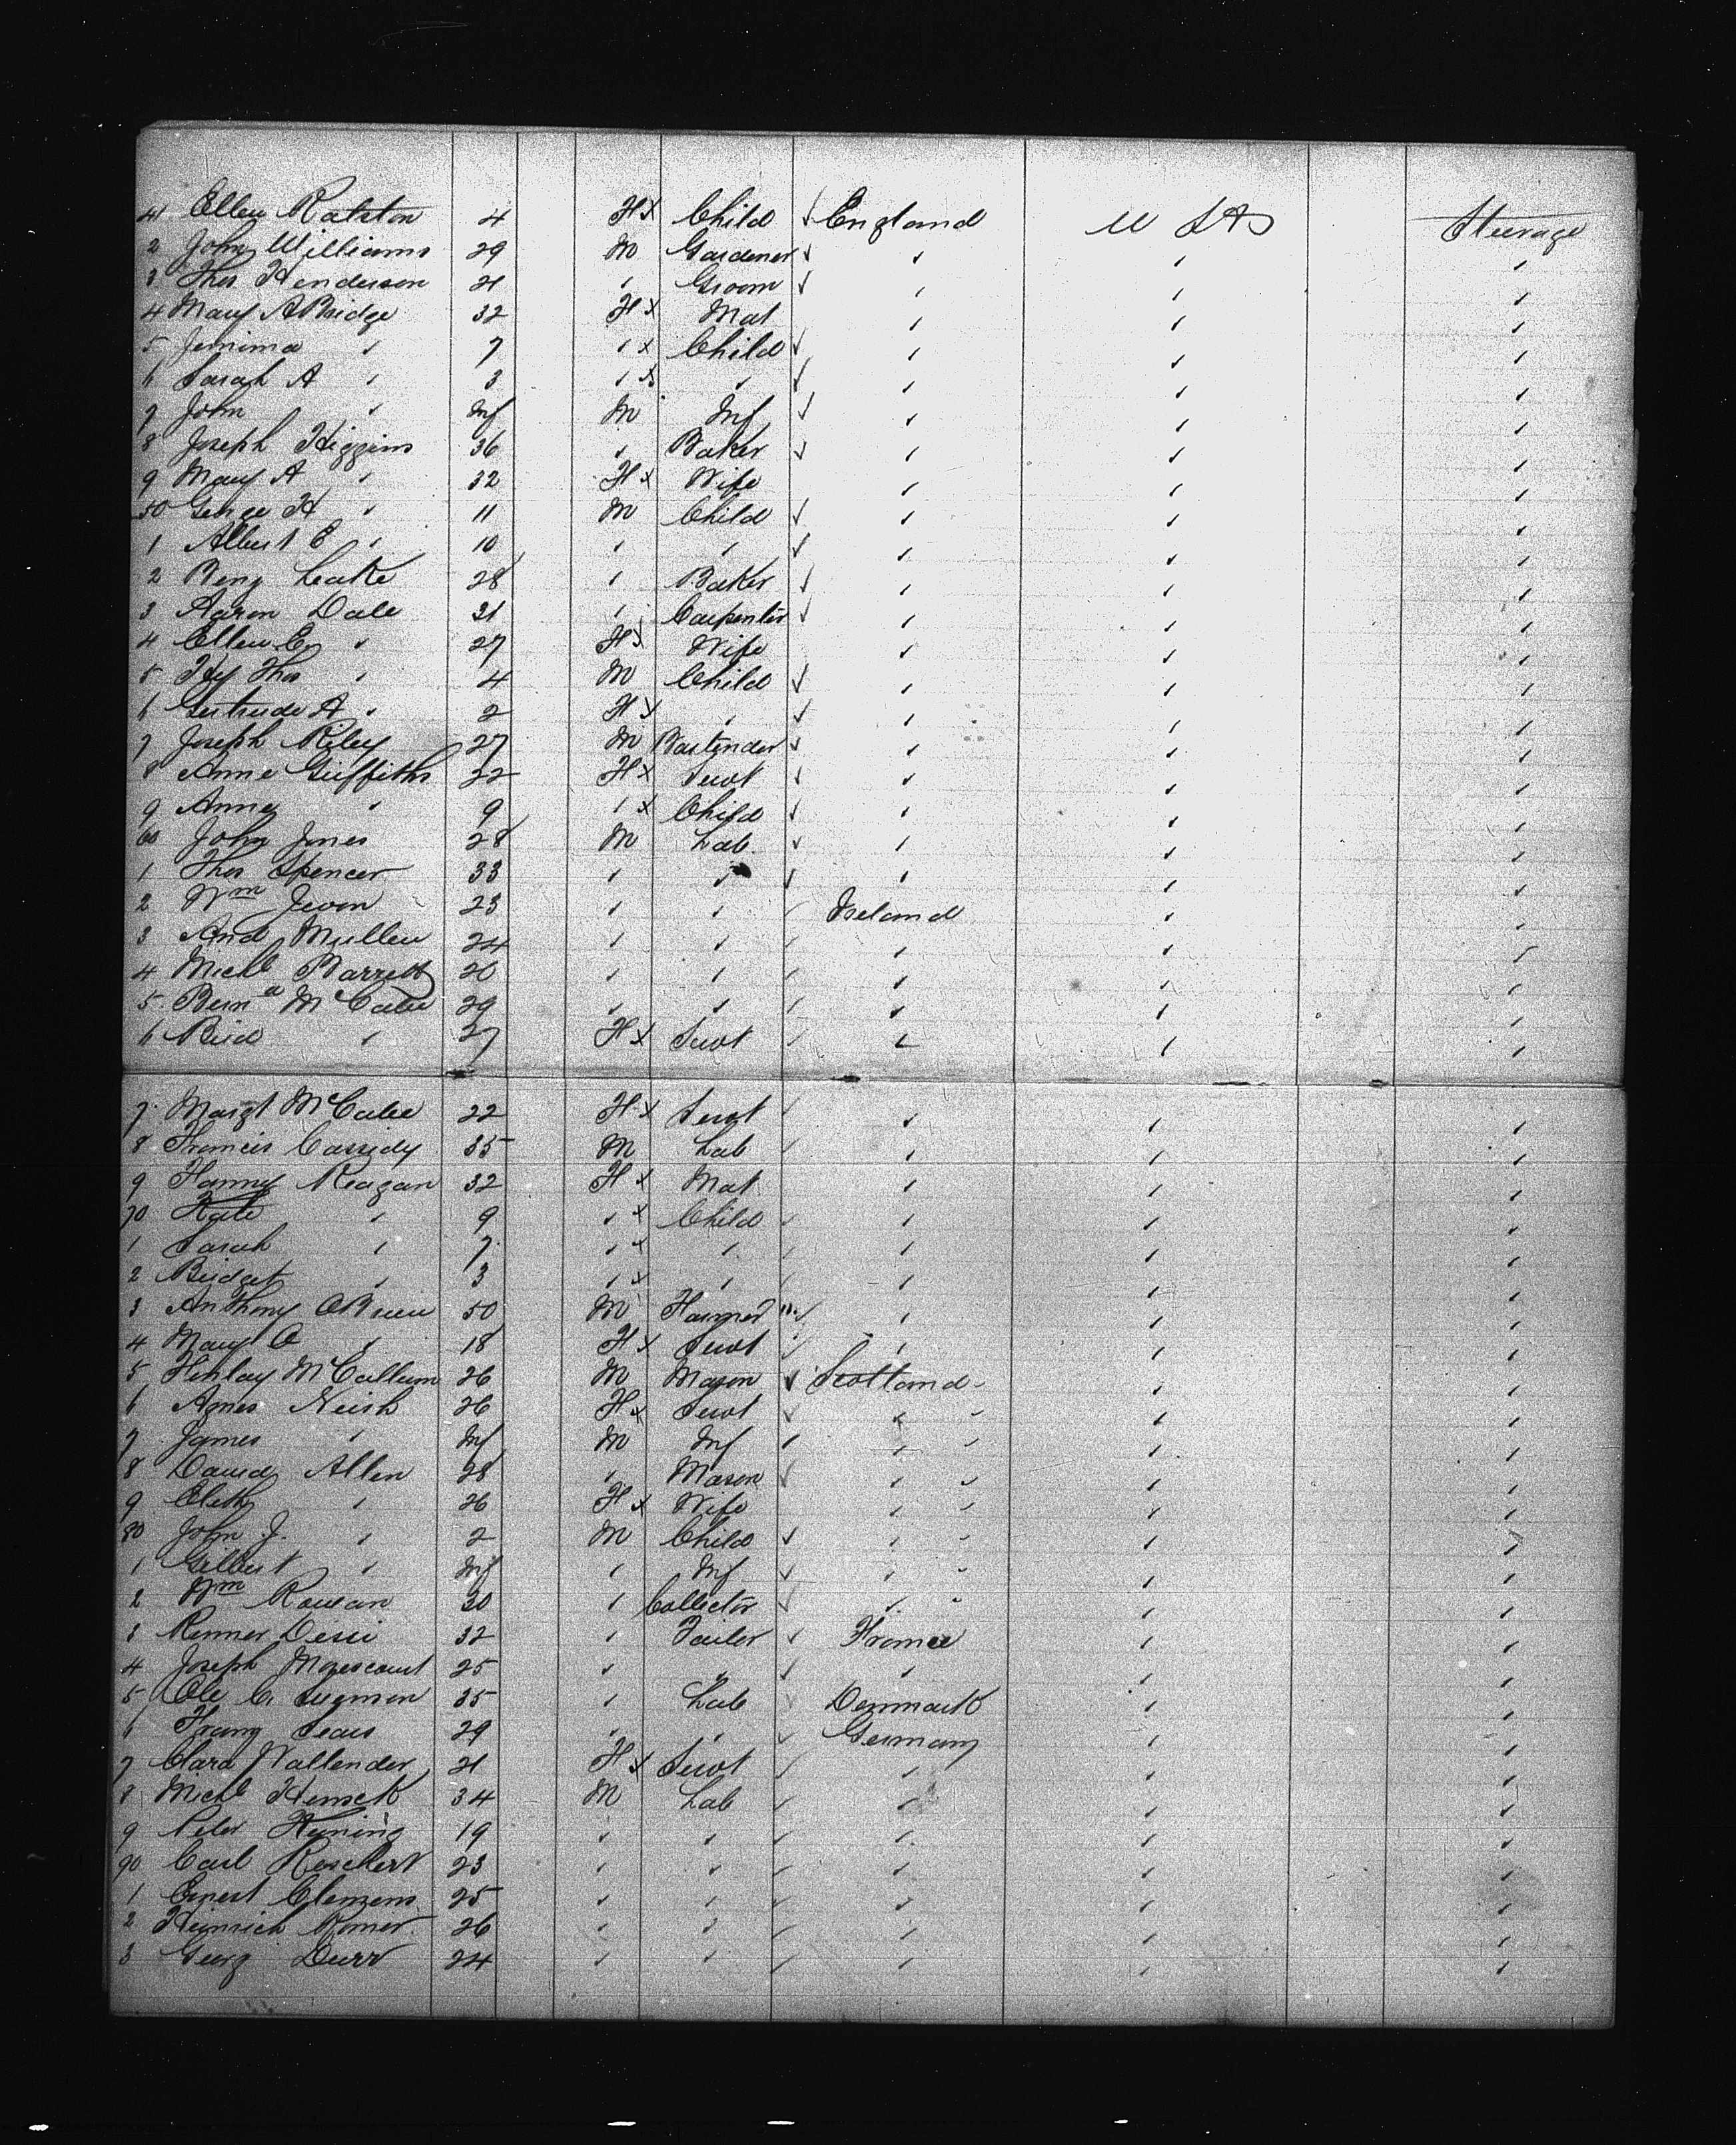 41 Ellen Ralston 4 F x Child ✓ England U S A Steerage
2 John Williams 29 M Gardener ✓ " " "
3 Thos Henderson 21 " Groom ✓ " " "
4 Mary A Bridge 32 F x Mat " " "
5 Jemima " 7 " x Child ✓ " " "
6 Sarah A " 3 " x " ✓ " " "
7 John " Inf M Inf ✓ " " "
8 Joseph Higgins 36 " Baker ✓ " " "
9 Mary A " 32 F x Wife " " "
50 George H " 11 M Child ✓ " " "
1 Albert E " 10 " " ✓ " " "
2 Benj Leake 28 " Baker ✓ " " "
3 Aaron Dale 31 " Carpenter ✓ " " "
4 Ellen " 27 F x Wife " " "
5 Hy Thos " 4 M Child ✓ " " "
6 Gertrude A " 2 F x " ✓ " " "
7 Joseph Riley 27 M Bartender ✓ " " "
8 Anne Griffiths 22 F x Servt ✓ " " "
9 Anne " 9 " x Child ✓ " " "
60 John Jones 28 M Lab ✓ " " "
1 Thos Spencer 33 " " ✓ " " "
2 Wm Jevon 23 " " ✓ Ireland " "
3 And Mullen 24 " " ✓ " " "
4 Michl Barrett 20 " " ✓ " " "
5 McCabe 29 " " ✓ " " "
6 Brid " 27 F x Servt ✓ " " "
7 Margt McCabe 22 F x Servt ✓ " " "
8 Francis Cassidy 35 M Lab ✓ " " "
9 Fanny Reagan 32 F x Mat " " "
70 Kate " 9 " x Child ✓ " " "
1 Sarah " 7 " x " ✓ " " "
2 Bridget " 3 " x " ✓ " " "
3 Anthony OBrien 50 M Farmer ✓ " " "
4 Mary O " 18 F x Servt ✓ " " "
5 Finlay McCallum 26 M Mason ✓ Scotland " "
6 Agnes Neish 26 F x Servt ✓ " " "
7 James " Inf M Inf ✓ " " "
8 David Allen 28 " Mason ✓ " " "
9 Elizth " 26 F x Wife " " "
80 John J. " 2 M Child ✓ " " "
1 Gilbert " Inf " Inf ✓ " " "
2 Wm Rowan 30 " Collector ✓ " " "
3 Renner 32 " Tailor ✓ France " "
4 Joseph 25 " " ✓ " " "
5 Ole C 35 " Lab ✓ Denmark " "
6 Franz 29 " " ✓ Germany " "
7 Clara Wallender 21 F x Servt ✓ " " "
8 Michl 34 M Lab ✓ " " "
9 Peter 19 " " ✓ " " "
90 Carl Roschert 23 " " ✓ " " "
1 Ernest Clemens 25 " " ✓ " " "
2 Heinrich 26 " " ✓ " " "
3 Georg Durr 24 " " ✓ " " "